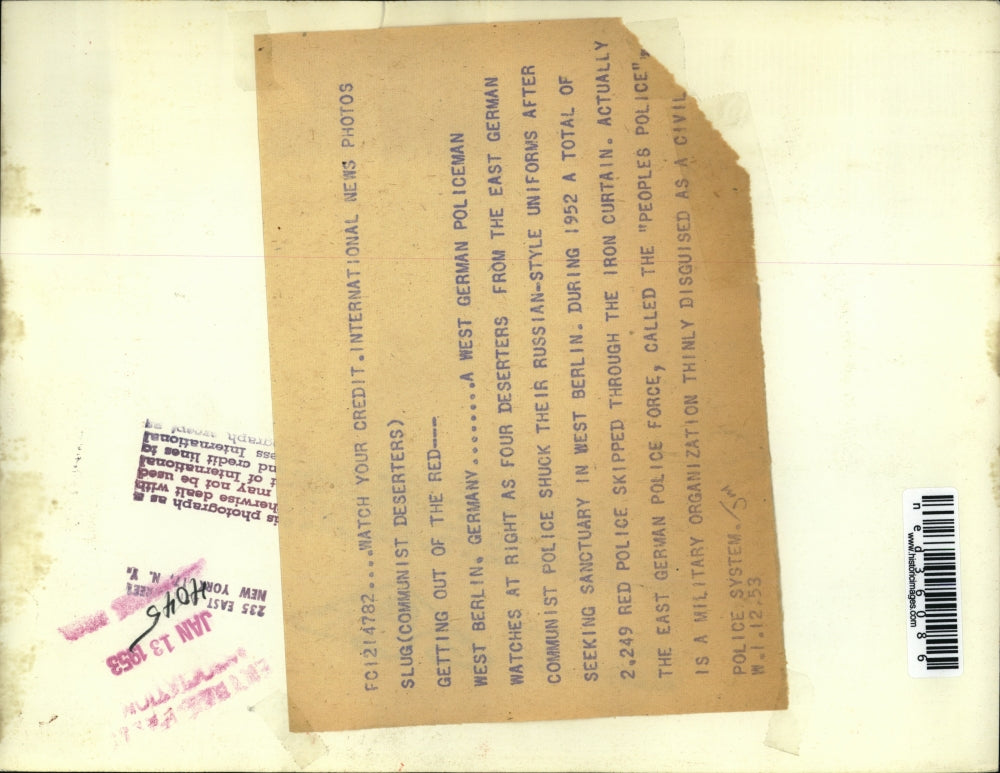 FC1214782....WATCH YOUR CREDIT.INTERNATIONAL NEWS PHOTOS
SLUG(COMMUNIST DESERTERS)
GETTING OUT OF THE RED---
WEST BERLIN. GERMANY........A WEST GERMAN POLICEMAN
WATCHES AT RIGHT AS FOUR DESERTERS FROM THE EAST GERMAN
COMMUNIST POLICE SHUCK THEIR RUSSIAN-STYLE UNIFORMS AFTER
SEEKING SANCTUARY IN WEST BERLIN. DURING 1952 A TOTAL OF
2.249 RED POLICE SKIPPED THROUGH THE IRON CURTAIN. ACTUALLY
THE EAST GERMAN POLICE FORCE, CALLED THE "PEOPLES POLICE",
IS A MILITARY ORGANIZATION THINLY DISGUISED AS A CIVIL
POLICE SYSTEM./
W.1.12.53
is photograph as a
herwise dealt with
may not be used
t of International
nd credit lines to
ess International
ograph except as
235 EAST
NEW YORK N. Y.
JAN 13 1953
www.historicimages.com
ned36086